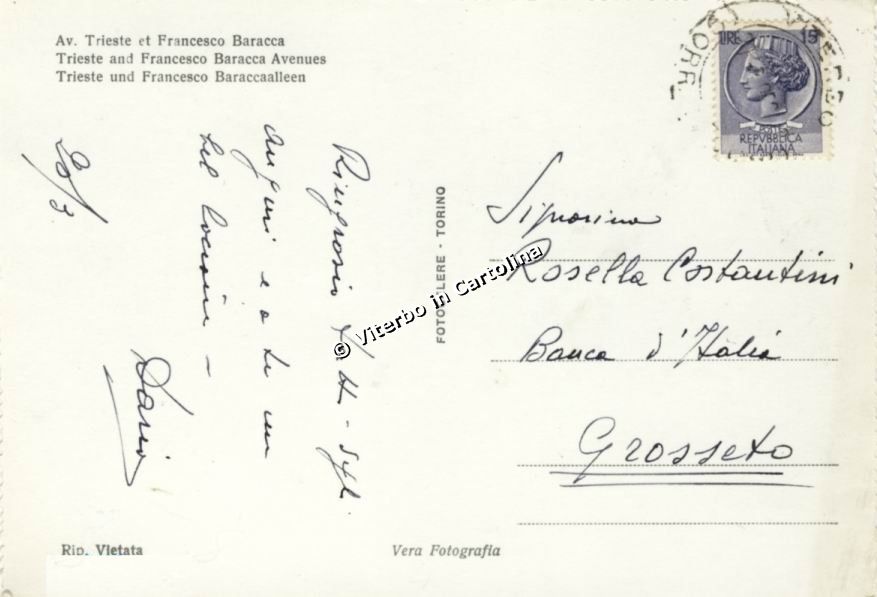 Av. Trieste et Francesco Baracca
Trieste and Francesco Baracca Avenues
Trieste und Francesco Baraccaalleen
LIRE 15
POSTE
REPVBBLICA
ITALIANA
Ringrazio
auguri e a te un
bel bacione -
Dario
FOTOCELERE - TORINO
© Viterbo in Cartolina
Signorina
Rosella Costantini
Banca d'Italia
Grosseto
Rip. Vietata
Vera Fotografia